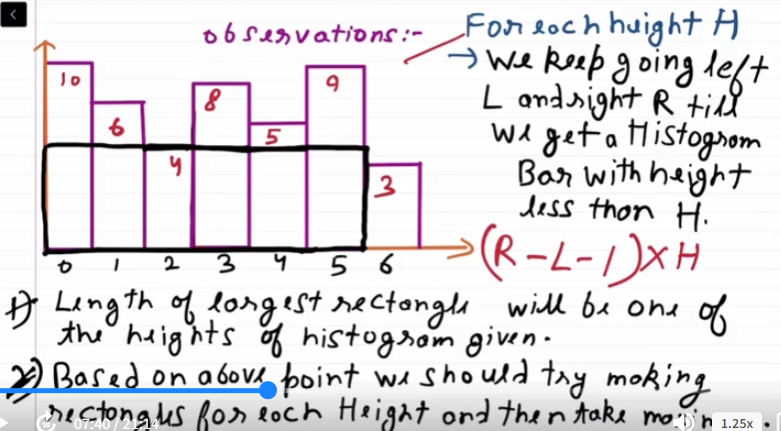 observations:-
For each height H
→ We keep going left
L and right R till
We get a Histogram
Bar with height
less than H.
(R-L-1)XH
10
6
4
8
5
9
3
0 1 2 3 4 5 6
1) Length of largest rectangle will be one of
the heights of histogram given.
2) Based on above point we should try making
rectangles for each Height and then take
07:40 / 21:14
1.25x